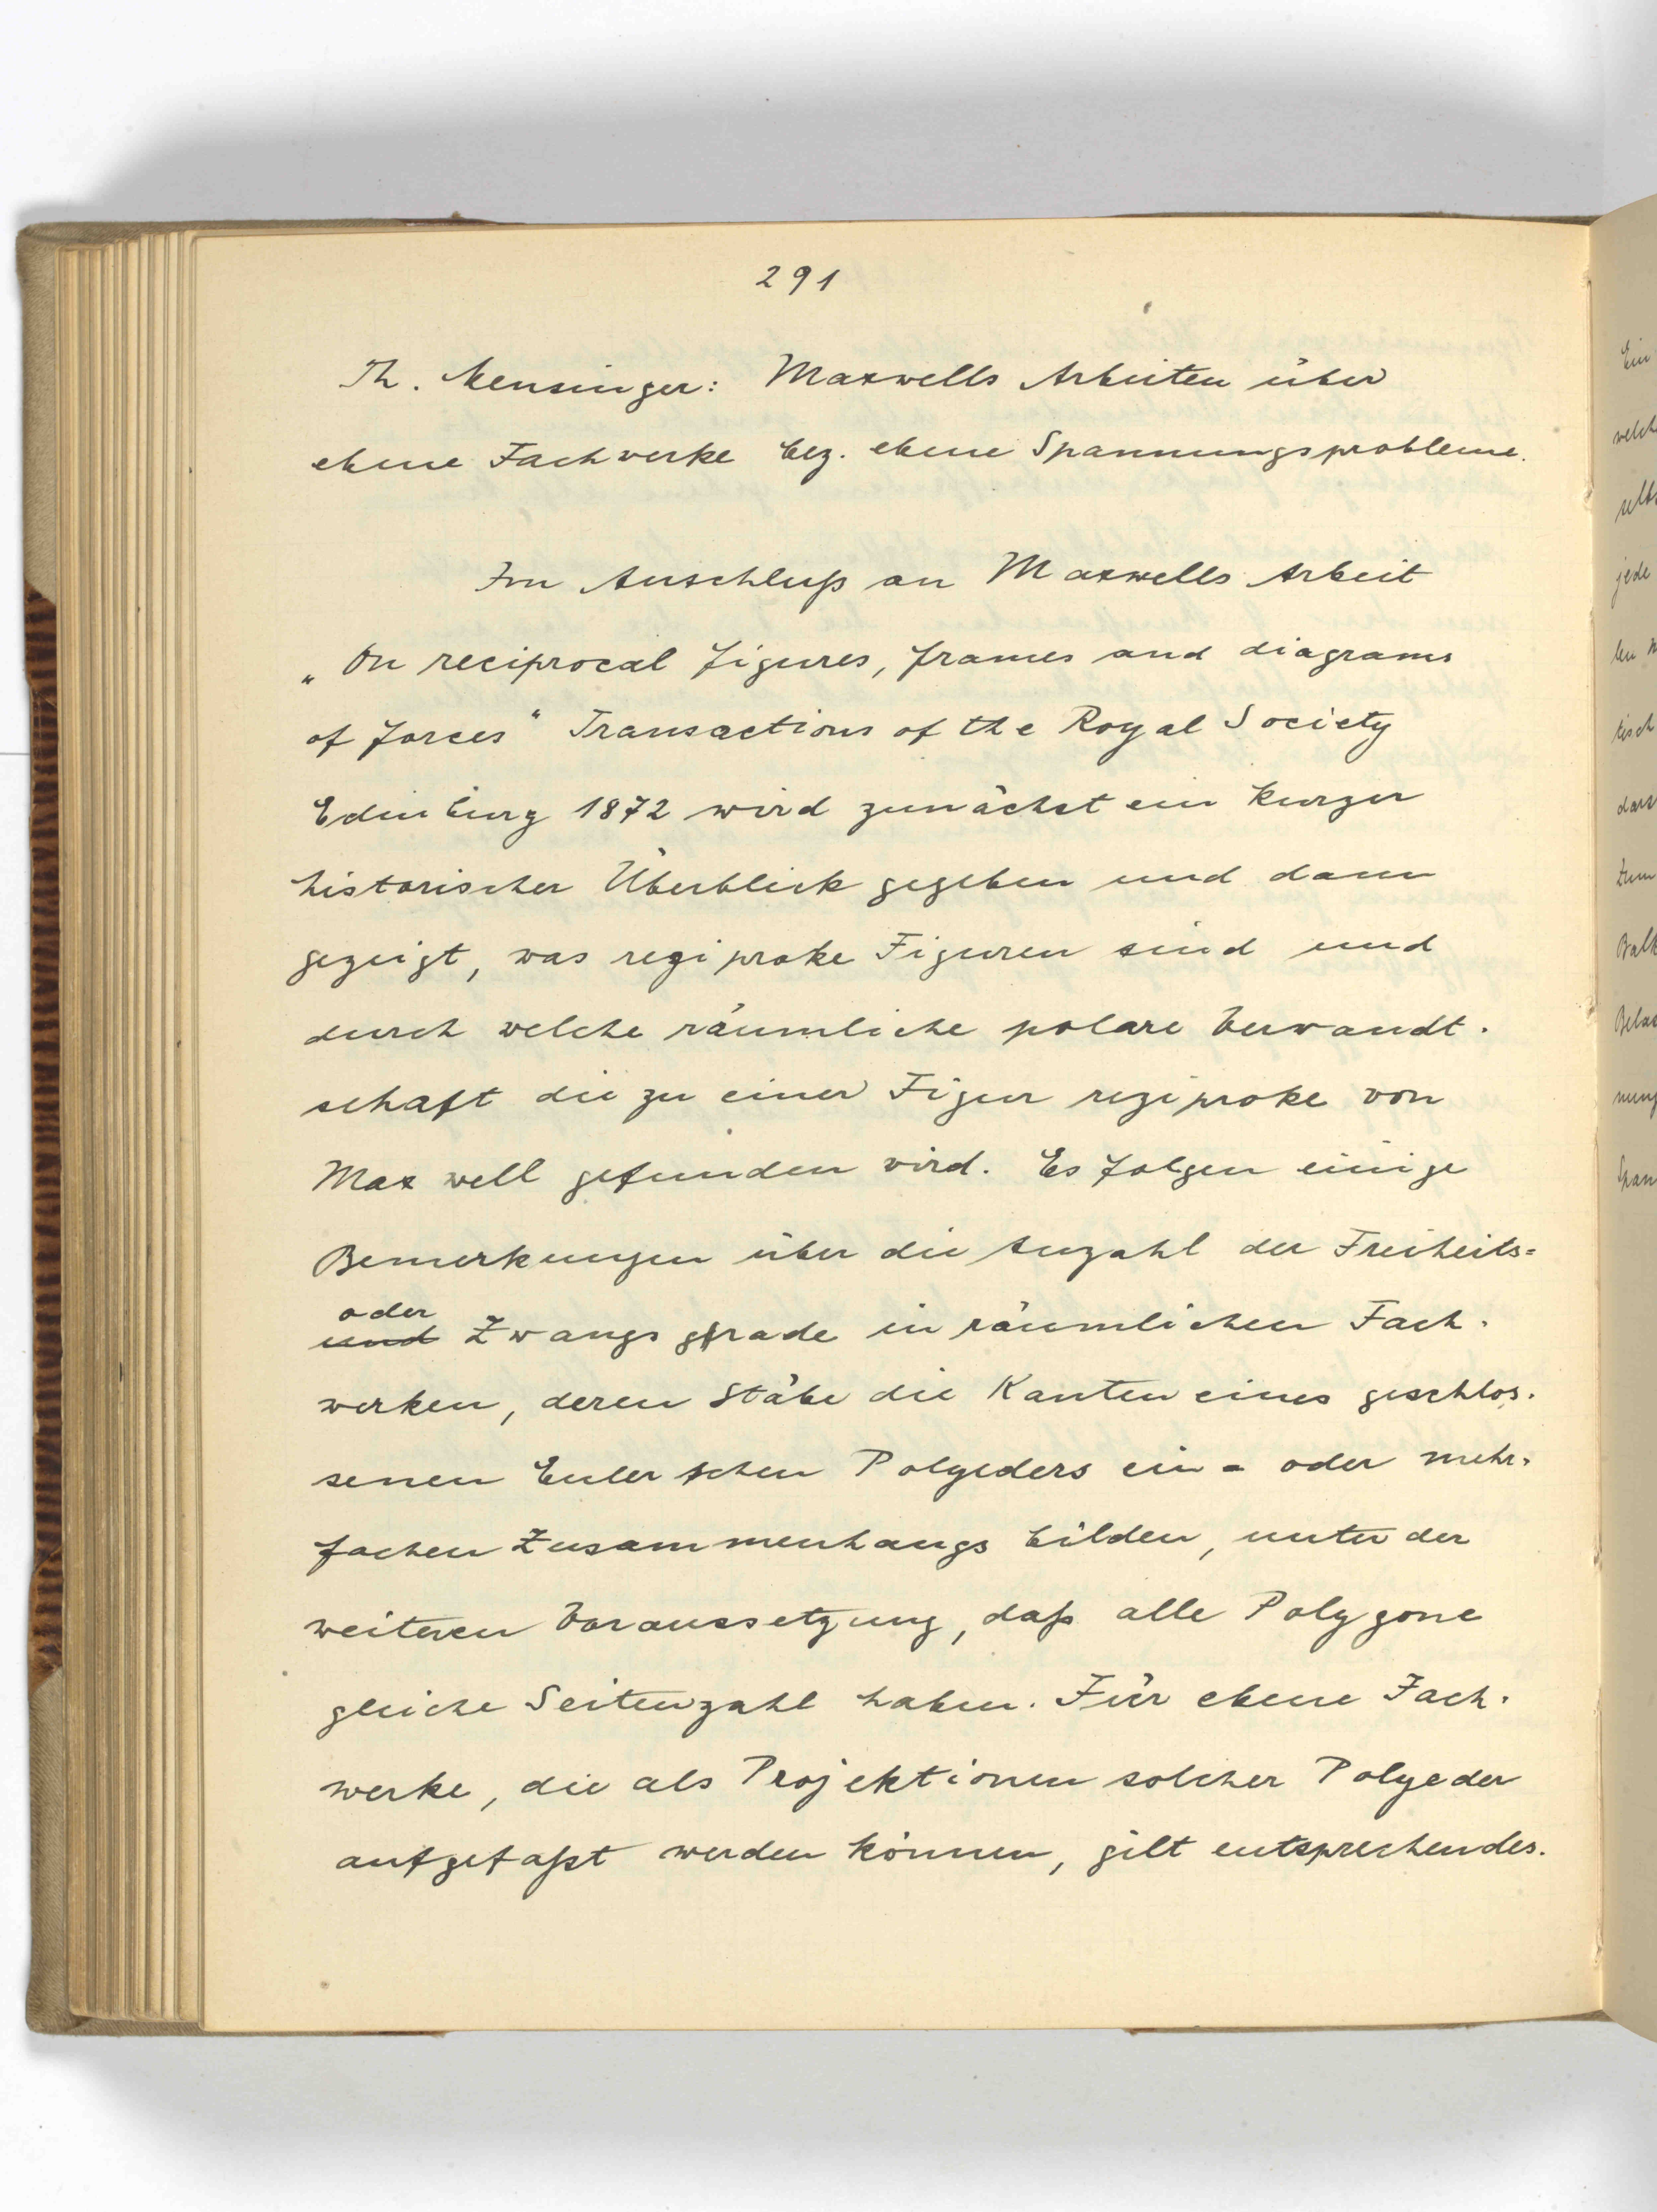 291
Th. Mensinger: Maxwells Arbeiten über
ebene Fachwerke bez. ebene Spannungsprobleme.
Im Anschluß an Maxwells Arbeit
„On reciprocal figures, frames and diagrams
of forces“ Transactions of the Royal Society
Edinburg 1872 wird zunächst ein kurzer
historischer Überblick gegeben und dann
gezeigt, was reziproke Figuren sind und
durch welche räumliche polare Verwandt-
schaft die zu einer Figur reziproke von
Maxwell gefunden wird. Es folgen einige
Bemerkungen über die Anzahl der Freiheits=
oder
und Zwangsgrade in räumlichen Fach-
werken, deren Stäbe die Kanten eines geschlos-
senen Eulerschen Polyeders ein- oder mehr-
fachen Zusammenhangs bilden, unter der
weiteren Voraussetzung, daß alle Polygone
gleiche Seitenzahl haben. Für ebene Fach-
werke, die als Projektionen solcher Polyeder
aufgefaßt werden können, gilt entsprechendes.